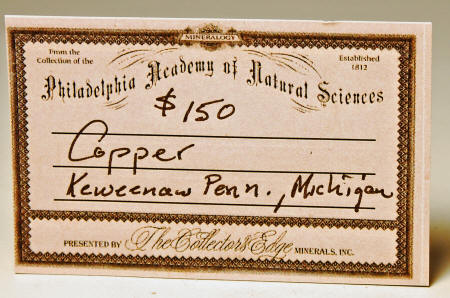 MINERALOGY
From the Established
Collection of the 1812
Philadelphia Academy of Natural Sciences
$150
Copper
Keweenaw Penn., Michigan
PRESENTED BY The Collector's Edge MINERALS, INC.